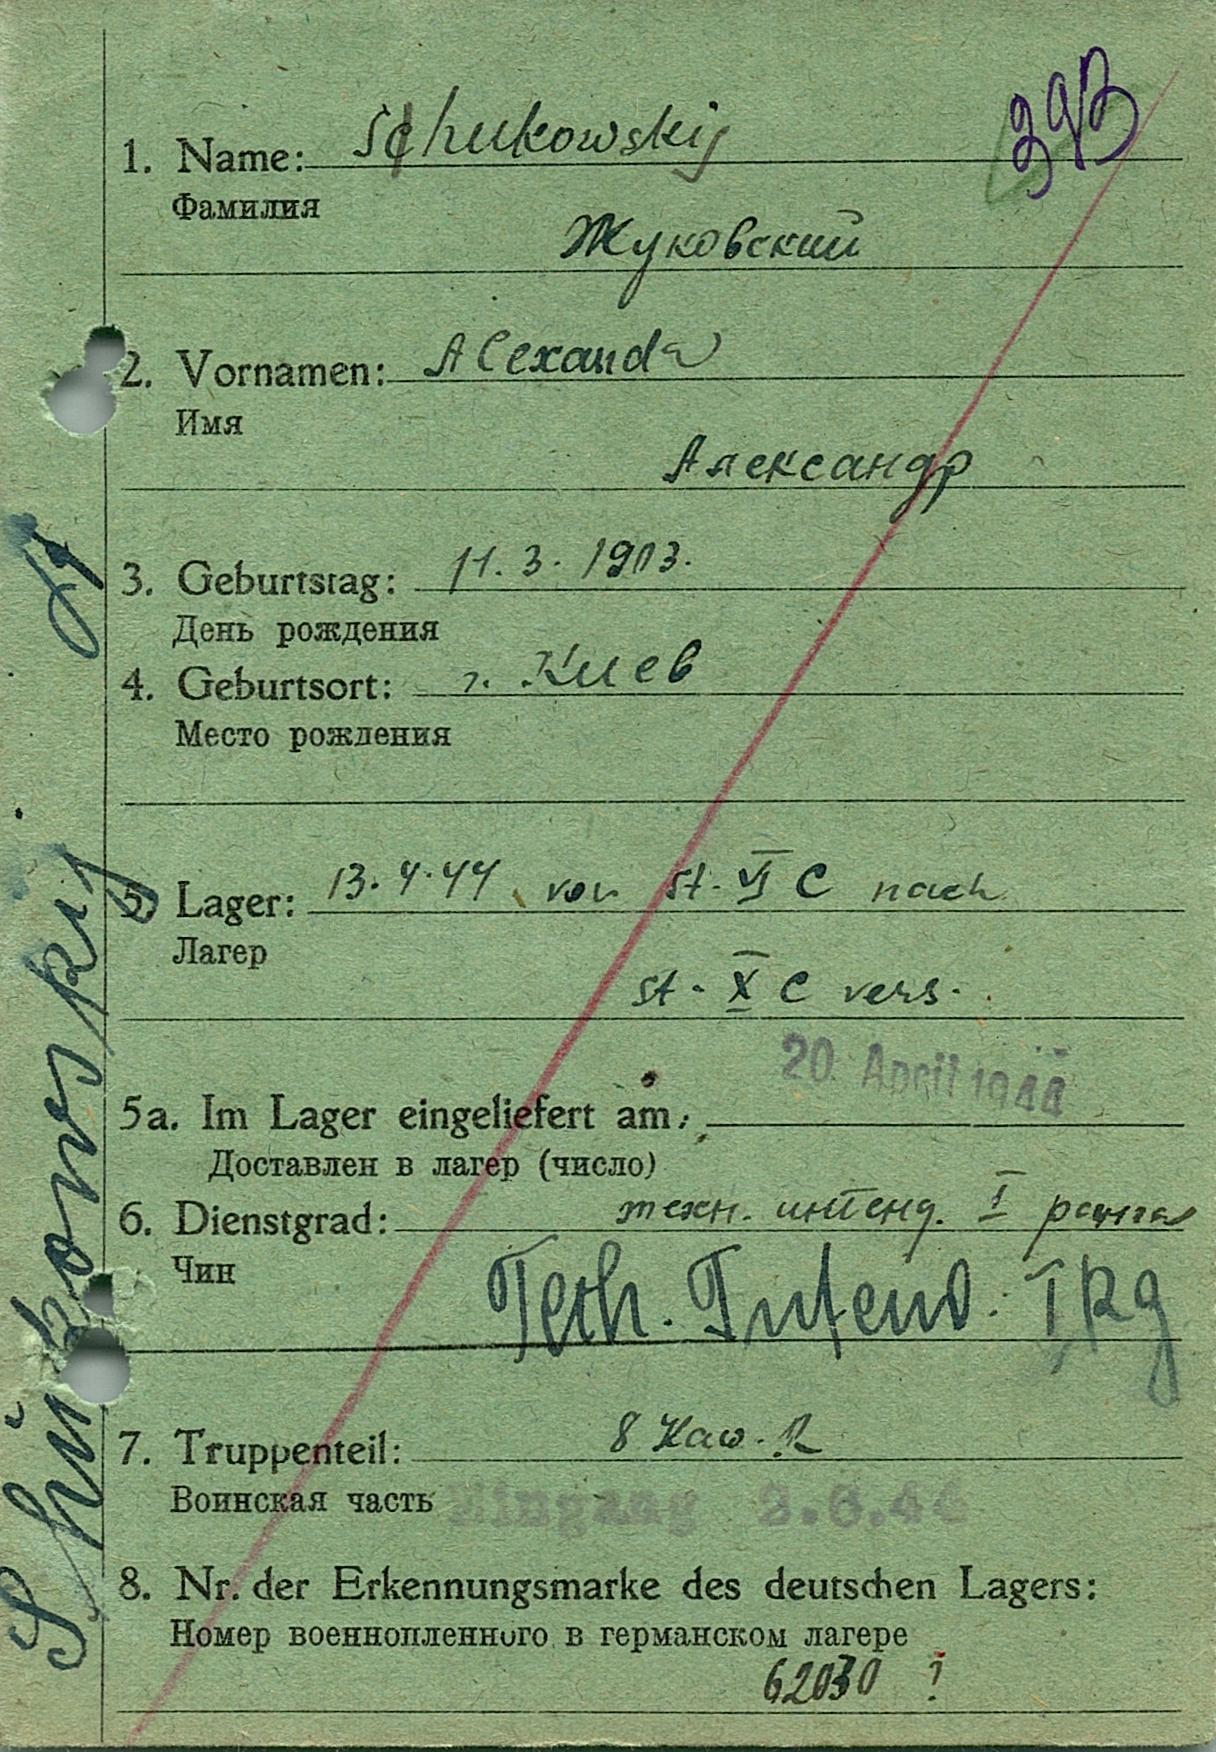 393
1. Name: Schukowskij
Фамилия
Жуковский
2. Vornamen: Alexander
Имя
Александр
3. Geburtstag: 11.3.1903.
День рождения
4. Geburtsort: г. Киев
Место рождения
5. Lager: 13.4.44 von St. VI C nach
Лагер
St. X C vers.
20. April 1944
5a. Im Lager eingeliefert am:
Доставлен в лагер (число)
6. Dienstgrad: техн. интенд. I ранга
Чин
Tech. Intend. I Rg
7. Truppenteil: 8 Kaw. R
Воинская часть Eingang 3.6.44
8. Nr. der Erkennungsmarke des deutschen Lagers:
Номер военнопленного в германском лагере
62030 ?
Shukowskij A